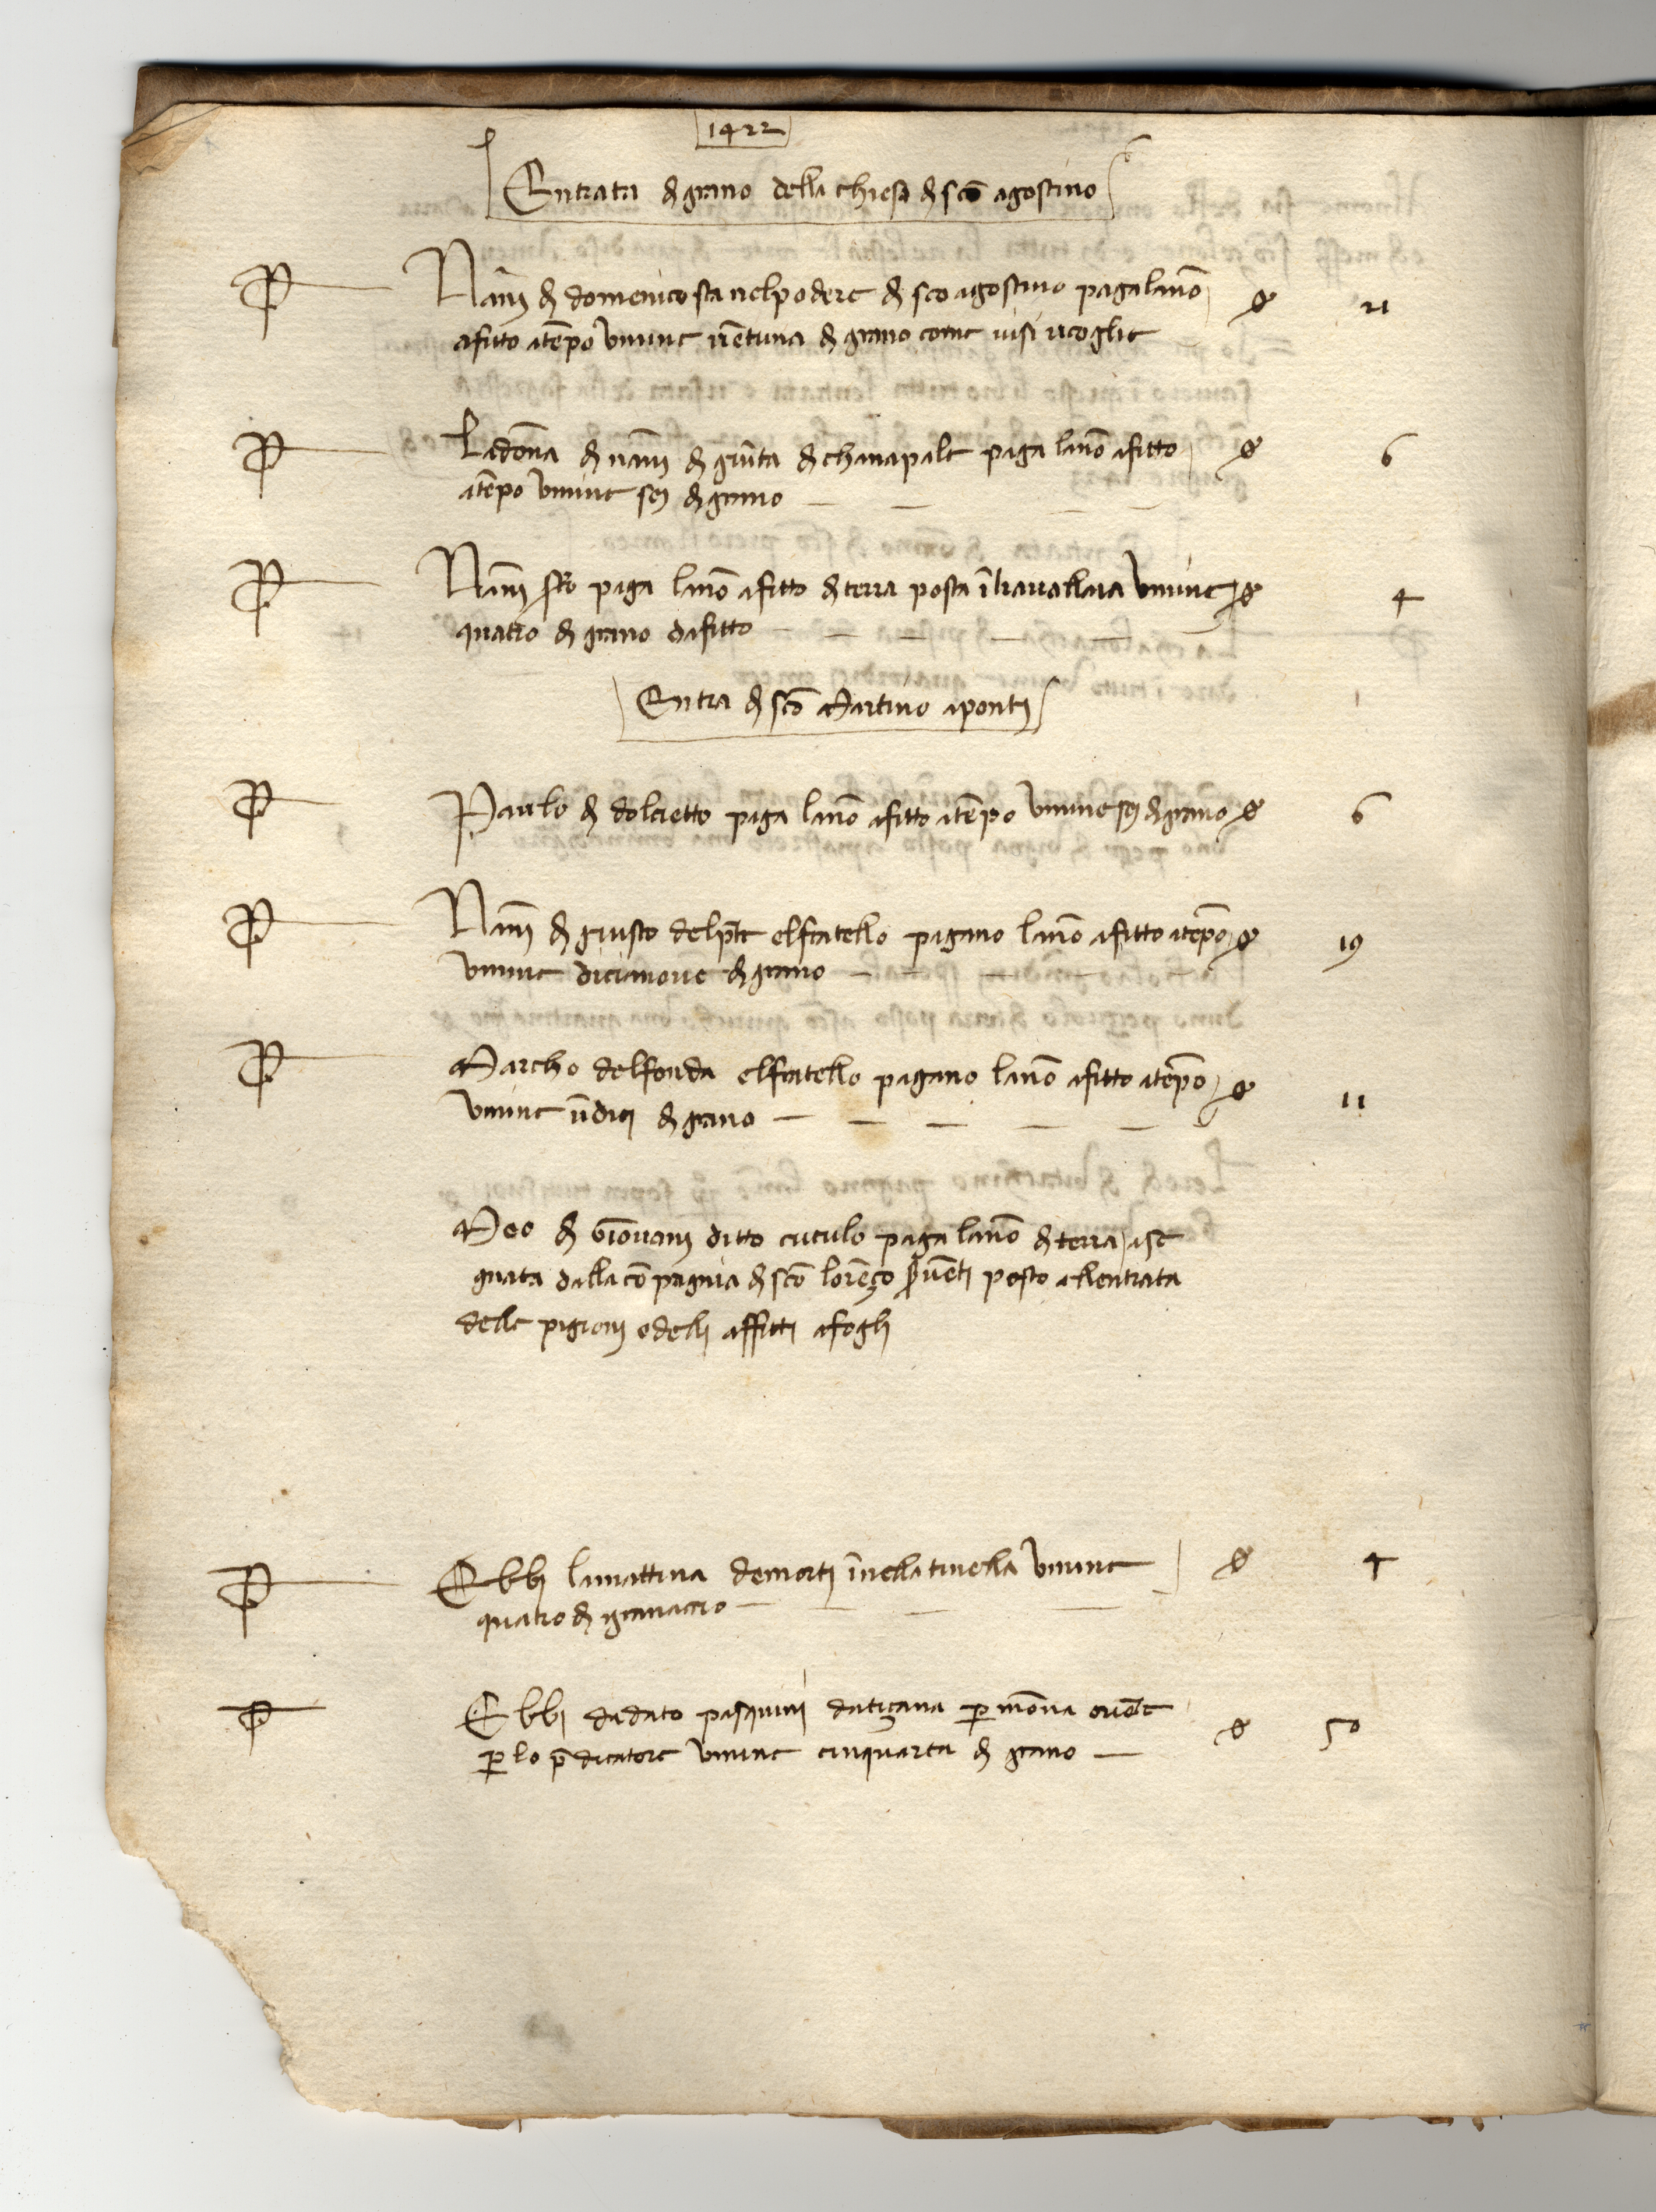 1422
Entrata di grano della chiesa di sco agostino
P Nanni di domenico sta nel podere di sco agostino paga lanno 21
afitto atepo vmine vetuna di grano come visi ricoglie
P La dona di nanni di giuta di chanapale paga lano afitto 6
atepo vmine sej di grano
P Nanni paga lano afitto di terra posta i travallaia vmine 4
quatro di grano dafitto
Entra di sco Martino aponti
P Paulo di dolcietto paga lano afitto atepo vmine sej di grano 6
P Nani di giusto del pte el fratello pagano lano afitto atepo 19
vmine dicianove di grano
P Marcho delfonda el fratello pagano lano afitto atepo 11
vmine udici di grano
Meo di giovani ditto cuculo paga lano di terra ase
gnata dalla copagnia di sco lorenço posto allentrata
delle pigioni e delli affitti afogli
P Ebbi la mattina de morti inella tinella vmine 4
quatro di granaccio
P Ebbi da dato pasquini datiçana p mona
p lo pdicatore vmine cinquanta di grano 50